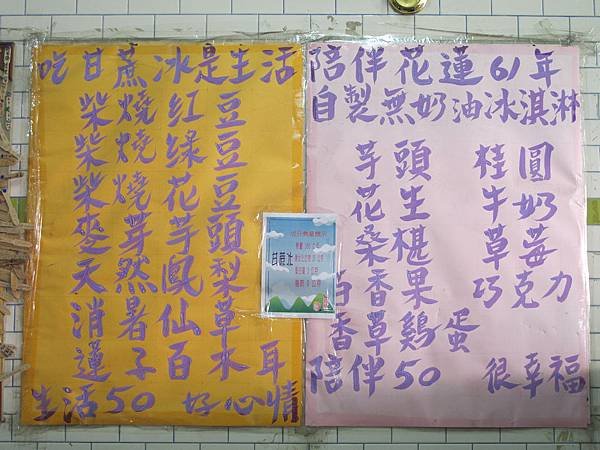 吃甘蔗冰是生活
柴燒紅豆
柴燒綠豆
柴燒花豆
麥芽芋頭
天然鳳梨
消暑仙草
蓮子百木耳
生活50 好心情
甘蔗冰
陪伴花蓮61年
自製無奶油冰淇淋
芋頭 桂圓
花生 牛奶
桑椹 草莓
百香果 巧克力
香草雞蛋
陪伴50 很幸福